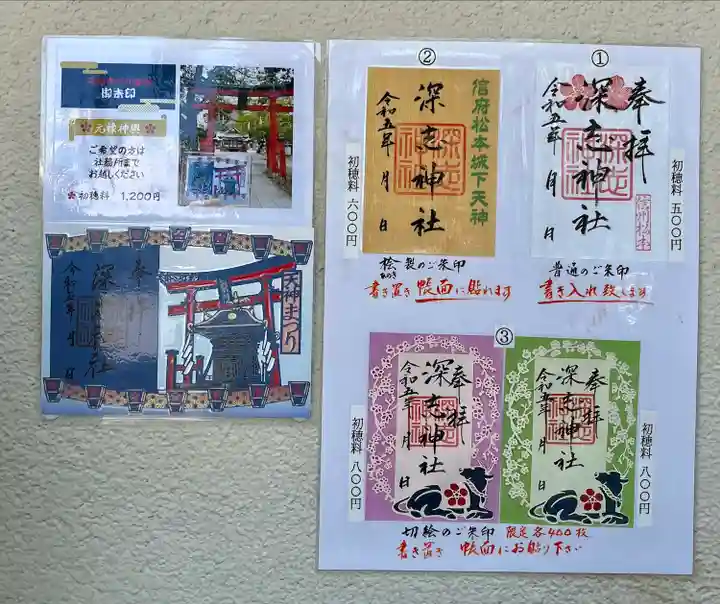 御朱印
元禄神輿
ご希望の方は
社務所まで
お越しください
初穂料 1,200円
天神まつり
奉拝
深志神社
令和五年 月 日
②
信府松本城下天神
深志神社
令和五年 月 日
初穂料 六〇〇円
桧製のご朱印
書き置き 帳面に貼れます
①
奉拝
深志神社
令和五年 月 日
信州松本
初穂料 五〇〇円
普通のご朱印
書き入れ致します
③
奉拝
深志神社
令和五年 月 日
初穂料 八〇〇円
奉拝
深志神社
令和五年 月 日
初穂料 八〇〇円
切絵のご朱印 限定各400枚
書き置き 帳面にお貼り下さい